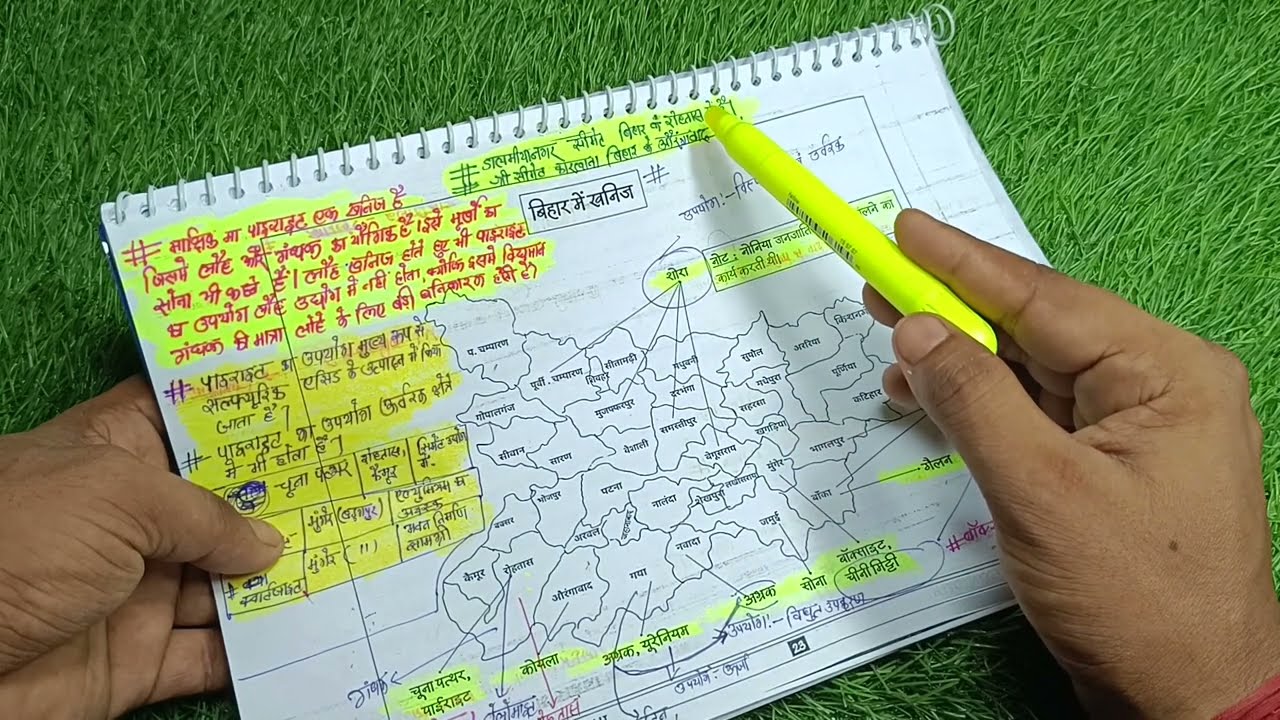 # डालमीयानगर सीमेंट बिहार के रोहतास में है।
# श्री सीमेंट कारखाना बिहार के औरंगाबाद
बिहार में खनिज #
# माक्षिक या पाइराइट एक खनिज है
जिसमें लौह और गंधक का यौगिक है। इसे मूर्खों का
सोना भी कहते हैं। लौह खनिज होते हुए भी पाइराइट
का उपयोग लौह उद्योग में नहीं होता, क्योंकि इसमें विद्यमान
गंधक की मात्रा लोहे के लिए बड़ी हानिकारक होती है।
# पाइराइट का उपयोग मुख्य रूप से
सल्फ्यूरिक एसिड के उत्पादन में किया
जाता है।
# पाइराइट का उपयोग उर्वरक क्षेत्र
में भी होता है।
चूना पत्थर रोहतास, कैमूर सिमेंट उद्योग में.
मुंगेर (खड़गपुर)
मुंगेर (11) भवन निर्माण
उपयोग:- उर्वरक
शोरा
नोट : नोनिया जनजाति
कार्य करती थी
प. चम्पारण
पूर्वी चम्पारण
शिवहर
सीतामढ़ी
मधुबनी
सुपौल
अररिया
किशनग
गोपालगंज
मुजफ्फरपुर
दरभंगा
मधेपुरा
पूर्णिया
सीवान
सारण
वैशाली
समस्तीपुर
सहरसा
खगड़िया
कटिहार
बेगूसराय
भागलपुर
मुंगेर
बांका
गैलेन
भोजपुर
पटना
नालंदा
शेखपुरा
लखीसराय
बक्सर
अरवल
जहानाबाद
नवादा
जमुई
कैमूर
रोहतास
औरंगाबाद
गया
बॉक्साइट,
चीनी मिट्टी
सोना
अभ्रक
उपयोग:- विद्युत उपकरण
अभ्रक, यूरेनियम
कोयला
चूना पत्थर,
पाईराइट
गंधक
उपयोग:- ऊर्जा
23